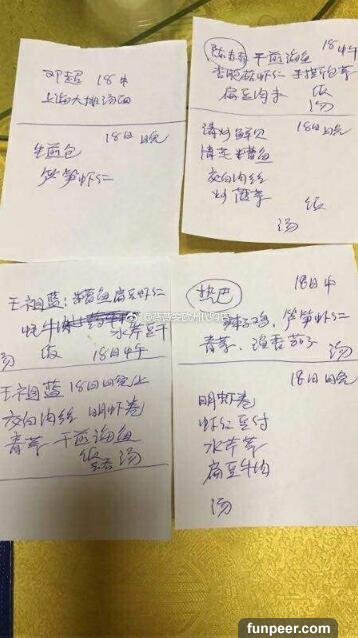 邓超 18中
上海大排汤面
18日晚
生煎包
竹笋虾仁
陈赫 干煎海鱼 18中午
虾仁 手撕包菜
扁豆肉末 饭
汤
清炒鲜贝 18日晚
情芝 鳝鱼
茭白肉丝
炒菠菜 饭
汤
王祖蓝:鳝鱼 扁豆虾仁
蚝牛 水芹豆干
汤 饭 18日中午
王祖蓝 18日日晚上
茭白肉丝 明虾卷
青菜 干煎海鱼
饭 汤
热巴 18日中
辣子鸡、竹笋虾仁
青菜、 汤
18日晚
明虾卷
虾仁豆付
水芹菜
扁豆牛肉
汤
funpeer.com